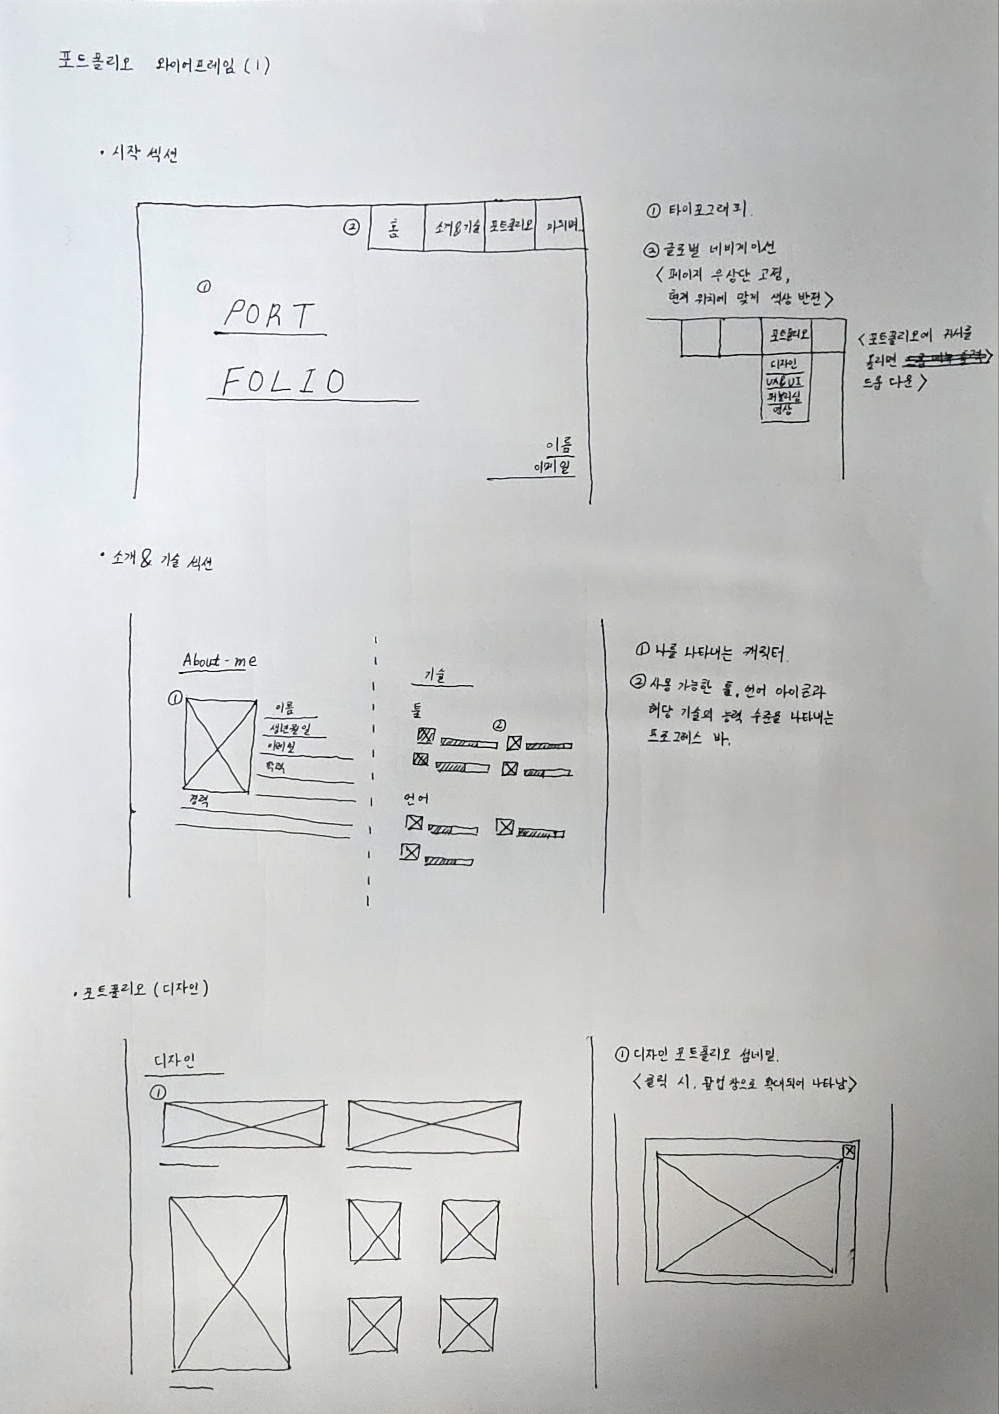 포트폴리오 와이어프레임 (1)
• 시작 섹션
② 홈 소개&기술 포트폴리오
① PORT
FOLIO
이름
이메일
① 타이포그래피.
② 글로벌 네비게이션
<페이지 우상단 고정,
현재 위치에 맞게 색상 반전>
포트폴리오
디자인
UX&UI
퍼블리싱
영상
<포트폴리오에 커서를
올리면
드롭 다운>
• 소개 & 기술 섹션
About-me
①
이름
생년월일
이메일
학력
경력
기술
툴
②
언어
① 나를 나타내는 캐릭터.
② 사용 가능한 툴, 언어 아이콘과
해당 기술의 능력 수준을 나타내는
프로그레스 바.
• 포트폴리오 (디자인)
디자인
①
① 디자인 포트폴리오 섬네일.
<클릭 시, 팝업창으로 확대되어 나타남>